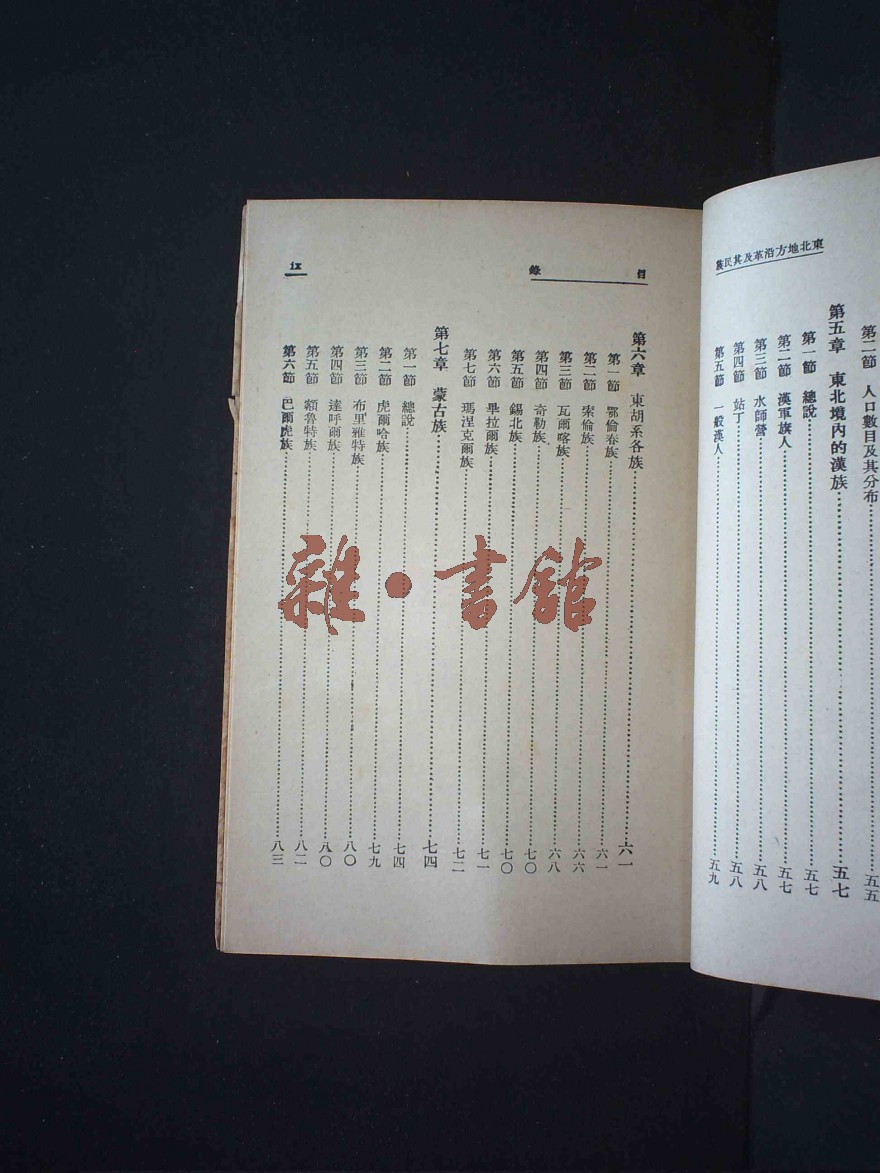 東北地方沿革及其民族
第二節 人口數目及其分布 五五
第五章 東北境內的漢族 五七
第一節 總說 五七
第二節 漢軍旗人 五七
第三節 水師營 五八
第四節 站丁 五八
第五節 一般漢人 五九
目錄
ix
第六章 東胡系各族 六一
第一節 鄂倫春族 六一
第二節 索倫族 六六
第三節 瓦爾喀族 六八
第四節 奇勒族 七〇
第五節 錫北族 七〇
第六節 畢拉爾族 七一
第七節 瑪涅克爾族 七二
第七章 蒙古族 七四
第一節 總說 七四
第二節 虎爾哈族 七九
第三節 布里雅特族 八〇
第四節 達呼爾族 八〇
第五節 額魯特族 八二
第六節 巴爾虎族 八三
雜·書館